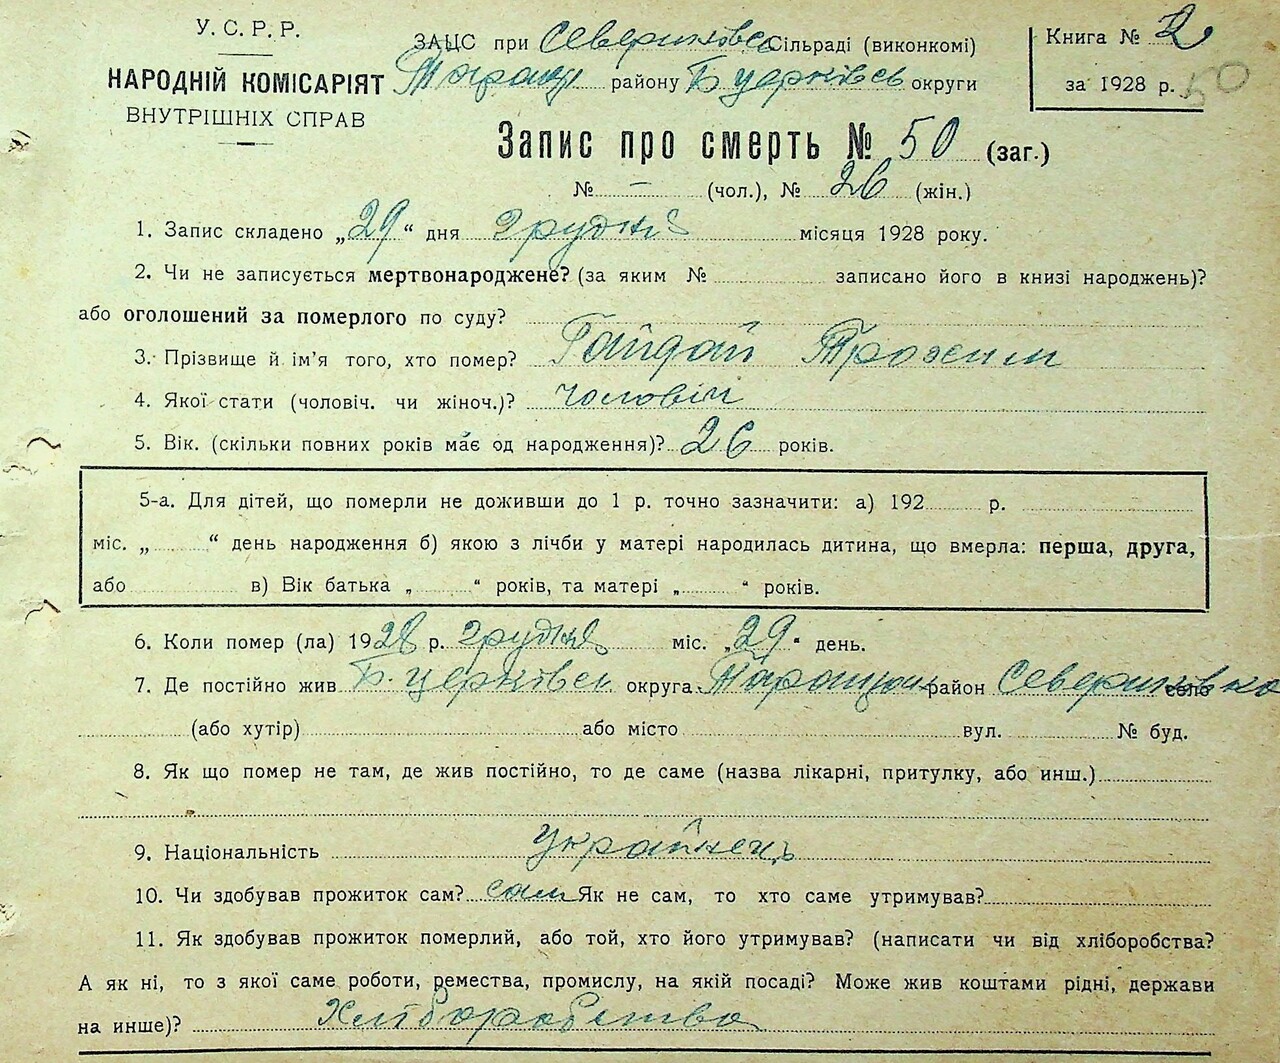 У. С. Р. Р.
НАРОДНІЙ КОМІСАРІЯТ
ВНУТРІШНІХ СПРАВ
ЗАЦС при Севериновс Сільраді (виконкомі)
Таращ району Б церківсь округи
Книга № 2
за 1928 р. 50
Запис про смерть № 50 (заг.)
№ — (чол.), № 26 (жін.)
1. Запис складено „29“ дня Грудня місяця 1928 року.
2. Чи не записується мертвонароджене? (за яким № записано його в книзі народжень)?
або оголошений за померлого по суду?
3. Прізвище й ім’я того, хто помер? Гайдай Трохим
4. Якої статі (чоловіч. чи жіноч.)? чоловіч
5. Вік. (скільки повних років має од народження)? 26 років.
5-а. Для дітей, що померли не доживши до 1 р. точно зазначити: а) 192 р.
міс. „ “ день народження б) якою з лічби у матері народилась дитина, що вмерла: перша, друга,
або в) Вік батька „ “ років, та матері „ “ років.
6. Коли помер (ла) 1928 р. грудня міс. „29“ день.
7. Де постійно жив Б. церківсь округа Таращан район Севериновка село
(або хутір) або місто вул. № буд.
8. Як що помер не там, де жив постійно, то де саме (назва лікарні, притулку, або инш.)
9. Національність українець
10. Чи здобував прожиток сам? сам Як не сам, то хто саме утримував?
11. Як здобував прожиток померлий, або той, хто його утримував? (написати чи від хліборобства?
А як ні, то з якої саме роботи, ремества, промислу, на якій посаді? Може жив коштами рідні, держави
на инше)? Хліборобство